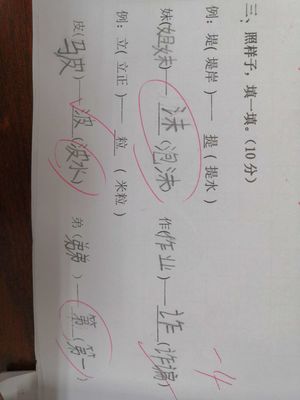 三、照样子，填一填。（10分）
例：堤（堤岸）——提（提水）
妹（姐妹）——沫（泡沫） 作（作业）——诈（诈骗）
例：立（立正）——粒（米粒） -4
皮（马皮）——波（波水） 弟（弟弟）——第（第一）